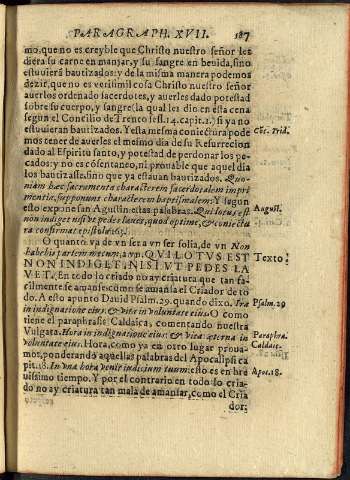 PARAGRAPH. XVII. 187
mo, que no es creyble que Christo nuestro señor les
diera su carne en manjar, y su sangre en beuida, sino
estuuierã bautizados: y de la misma manera podemos
dezir, que no es verisimil cosa Christo nuestro señor
auerlos ordenado sacerdotes, y auerles dado potestad
sobre su cuerpo, y sangre (la qual les dio en esta cena
segun el Concilio de Trento sess. 14. capit. 1.) si ya no
estuuieran bautizados. Y esta mesma conjectura pode
Cõc. Trid.
mos tener de auerles el mesmo dia de su Resurrecion
dado al Espiritu santo, y potestad de perdonar los pe-
cados: y no es cõsentaneo, ni prouable que aquel dia
los bautizasse, sino que ya estauan bautizados. Quo-
niam hæc sacramenta characterem sacerdotalem impri
mentia, supponunt characterem baptismalem: Y segun
esto expone san Agustin estas palabras. Qui lotus est
August.
non indiget nisi vt pedes lauet, quos optime, & coniectu
ra confirmat epistola 163.
O quanto va de vn ser a vn ser solia, de vn Non
habebis partem mecum, a vn, QVI LOTVS EST
Texto
NON INDIGET, NISI VT PEDES LA
VET. En todo lo criado no ay criatura que tan fa-
cilmente se amanse como se amansa el Criador de to
do. A esto apunto Dauid Psalm. 29. quando dixo. Ira
Psalm. 29
in indignatione eius, & vita in voluntate eius. O como
tiene el paraphrasis Caldaica, comentando nuestra
Vulgata. Hora in indignatione eius, & vita æterna in
Paraphra.
voluntate eius. Hora, como ya en otro lugar proua-
Caldaic.
mos, ponderando aquellas palabras del Apocalipsi ca
pit. 18. In vna hora venit iudicium tuum: esto es en bre
Apoc. 18.
uissimo tiempo. Y por el contrario en todo lo cria-
do no ay criatura tan mala de amansar, como el Cria
dor;